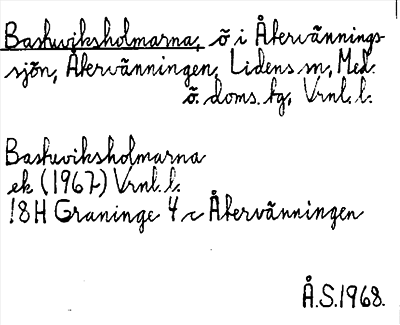 Bastuviksholmarna, ö i Återvännings-
sjön, Återvänningen, Lidens sn, Med.
ö. doms. tg, Vrnl. l.
Bastuviksholmarna
ek (1967) Vrnl. l.
18H Graninge 4 c Återvänningen
Å.S. 1968.